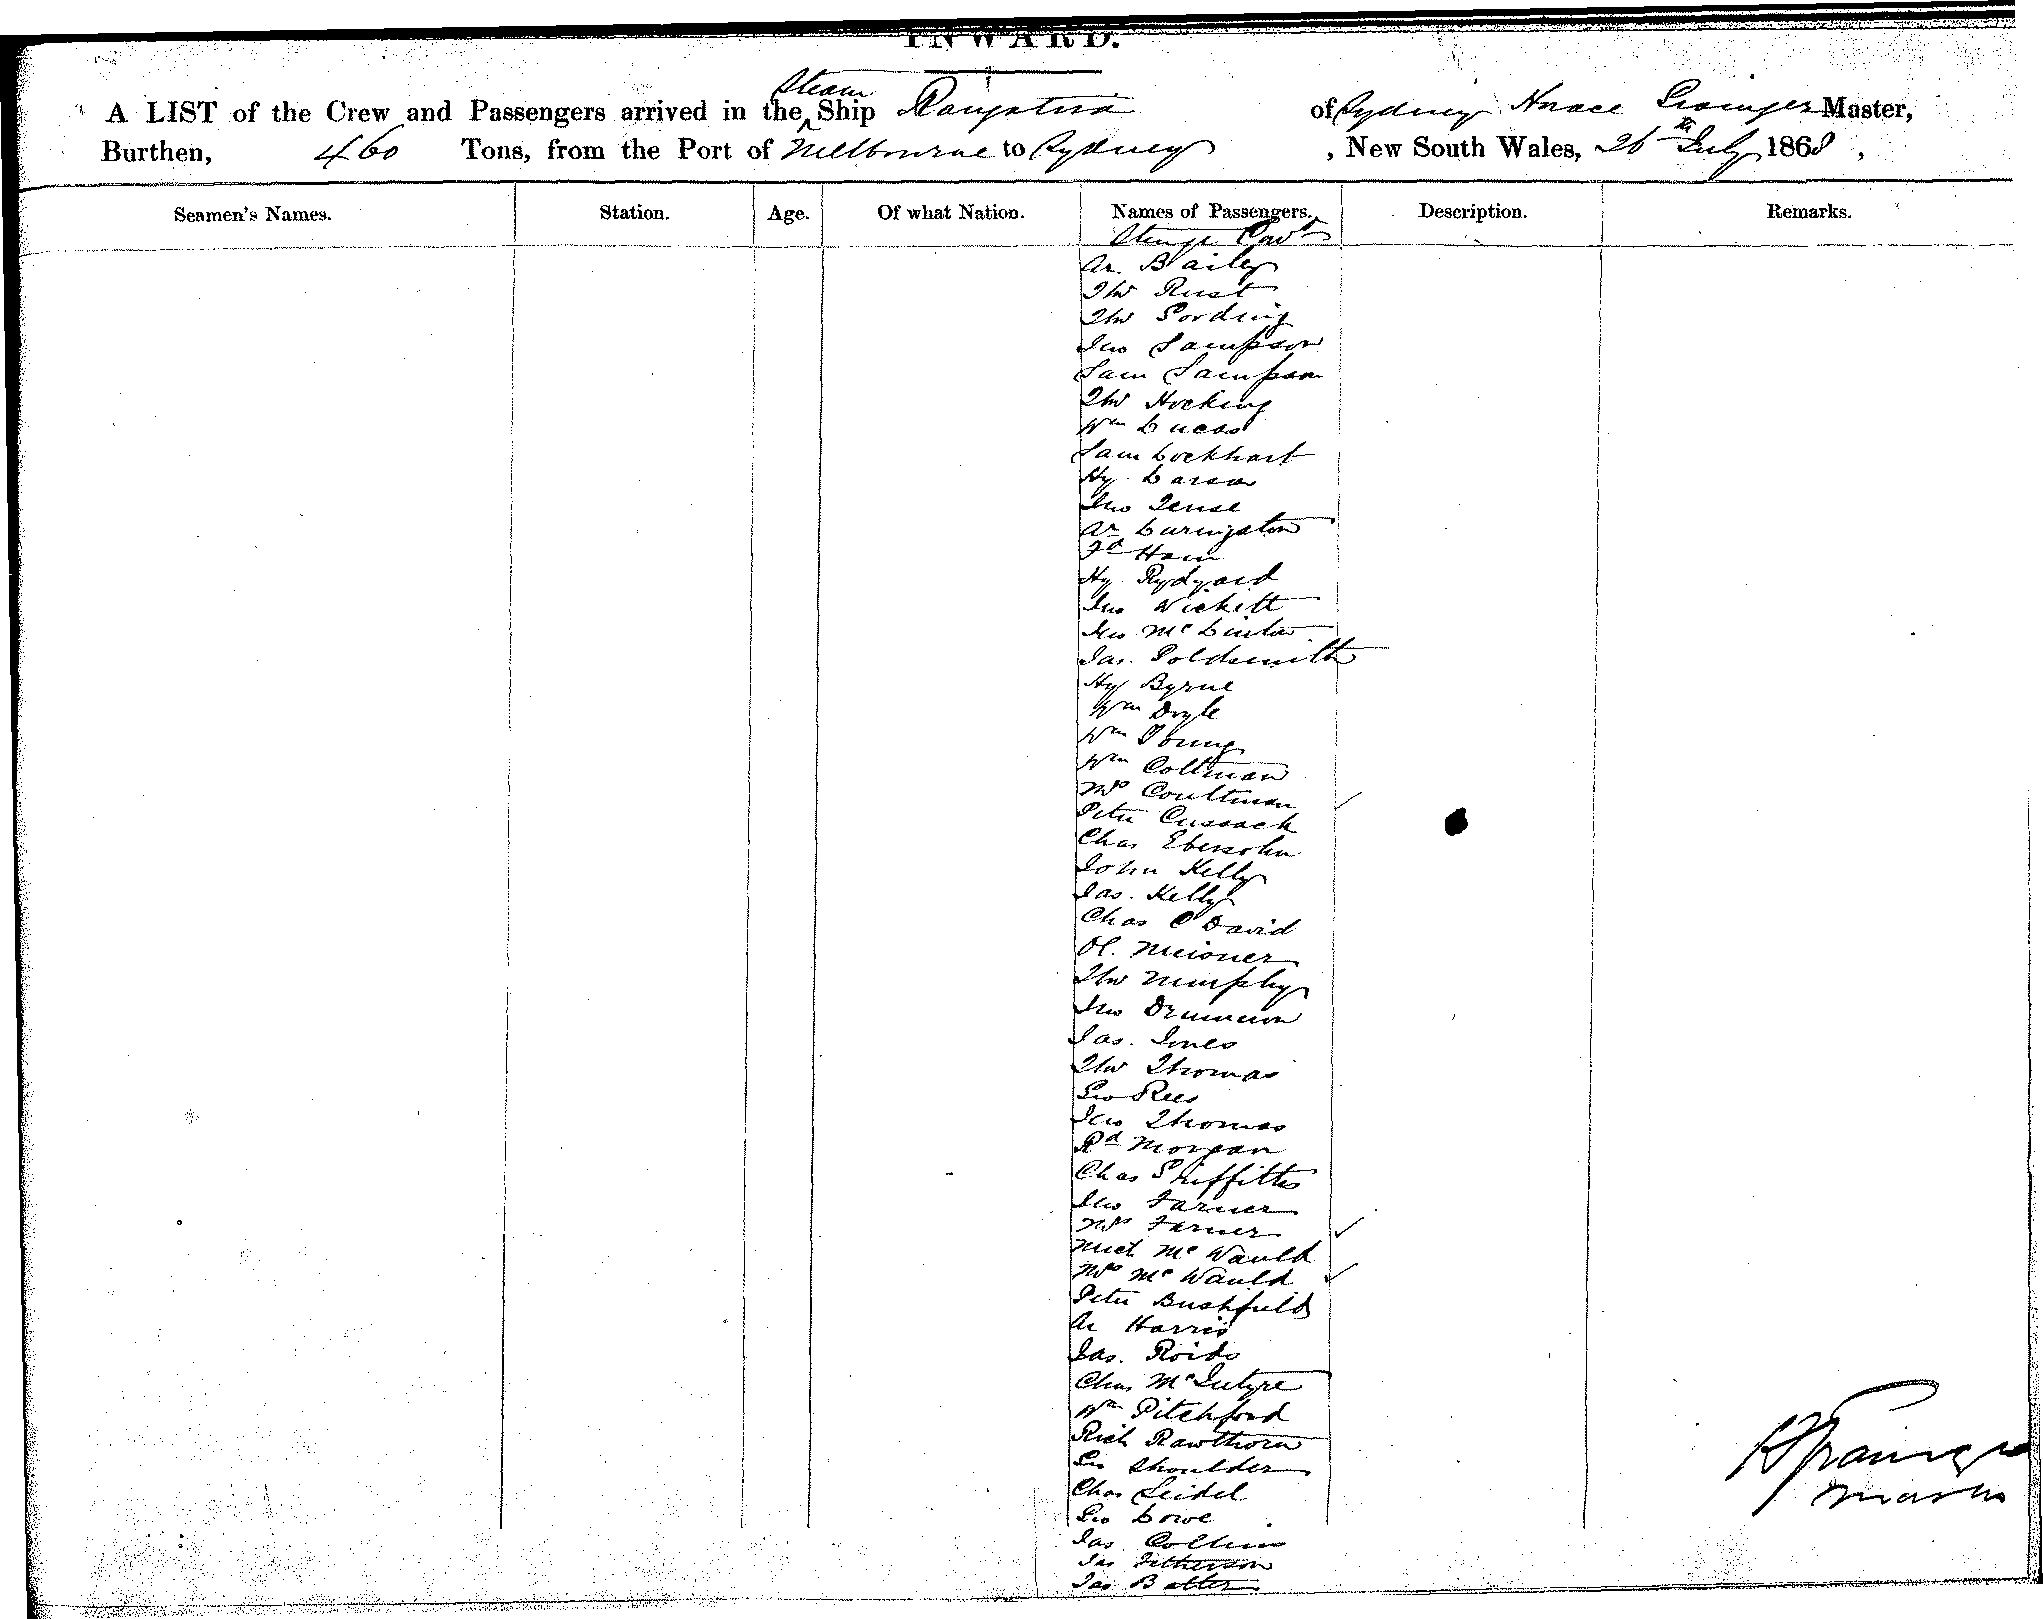 INWARD.
A LIST of the Crew and Passengers arrived in the Steam Ship Rangatira of Sydney Horace Grainger Master,
Burthen, 460 Tons, from the Port of Melbourne to Sydney, New South Wales, 26th July 1868,
Seamen's Names. Station. Age. Of what Nation. Names of Passengers. Description. Remarks.
Steerge Cont
Ar. Bailey
Thos Rust
Thos Gording
Jno Sampson
Sam Sampson
Thos Hocking
Wm Lucas
Sam Lockhart
Hy. Larsen
Jno Tense
Ar Livingston
Fd Ham
Hy. Rydyard
Jno Wickett
Jno Mc Linton
Jas. Goldsmith
Hy Byrne
Wm Doyle
Wm Young
Wm Coltman
Mrs Coultman
Peter Cussack
Chas Ebersohn
John Kelly
Jas. Kelly
Chas O David
Ol. Meisner
Thos Murphy
Jno Drummon
Jas. Jones
Thos Thomas
Geo Rees
Jno Thomas
Rd Morgan
Chas Griffiths
Jno Farmer
Mrs Farmer
Mich Mc Wauld
Mrs Mc Wauld
Peter Bushfield
Ar Harris
Jas. Roids
Chas McIntyre
Wm Pitchford
Rich Rawthorn
Geo Shoulder
Chas Seidel
Geo Lowe
Jas. Collins
Jas
Jas Batter
H Grainger
Master